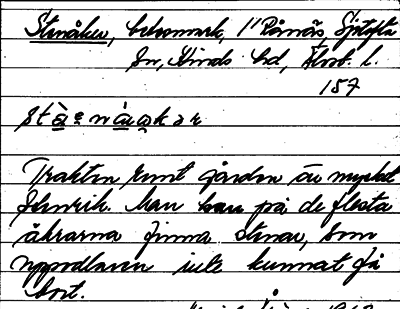 Stenåker, bebomark, 1" Rånäs, Sjötofta
sn, Kinds hd, Älvsb. l.
157
Trakten runt gården är mycket
stenrik. Man kan på de flesta
åkrarna finna stenar, som
uppodlaren inte kunnat få
bort.